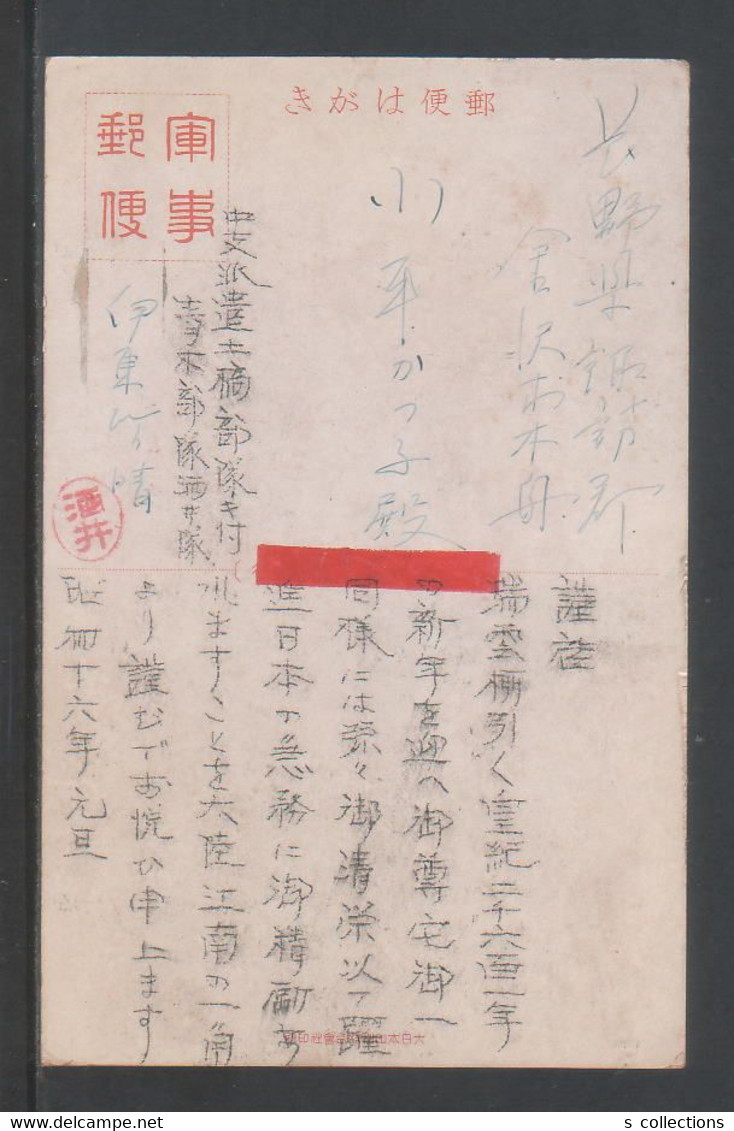 郵便はがき
軍事
郵便
長野県諏訪郡
金沢村木舟
小平かつ子殿
中支派遣土橋部隊キ付
青木部隊酒井隊
伊東
晴
酒井
謹啓
瑞雲棚引く皇紀二千六百一年
の新年を迎へ御尊宅御一
同様には弥々御清栄以て躍
進日本の急務に御精励あ
れますことを大陸江南の一角
より謹むでお悦び申上ます
昭和十六年元旦
大日本
會社印
s collections